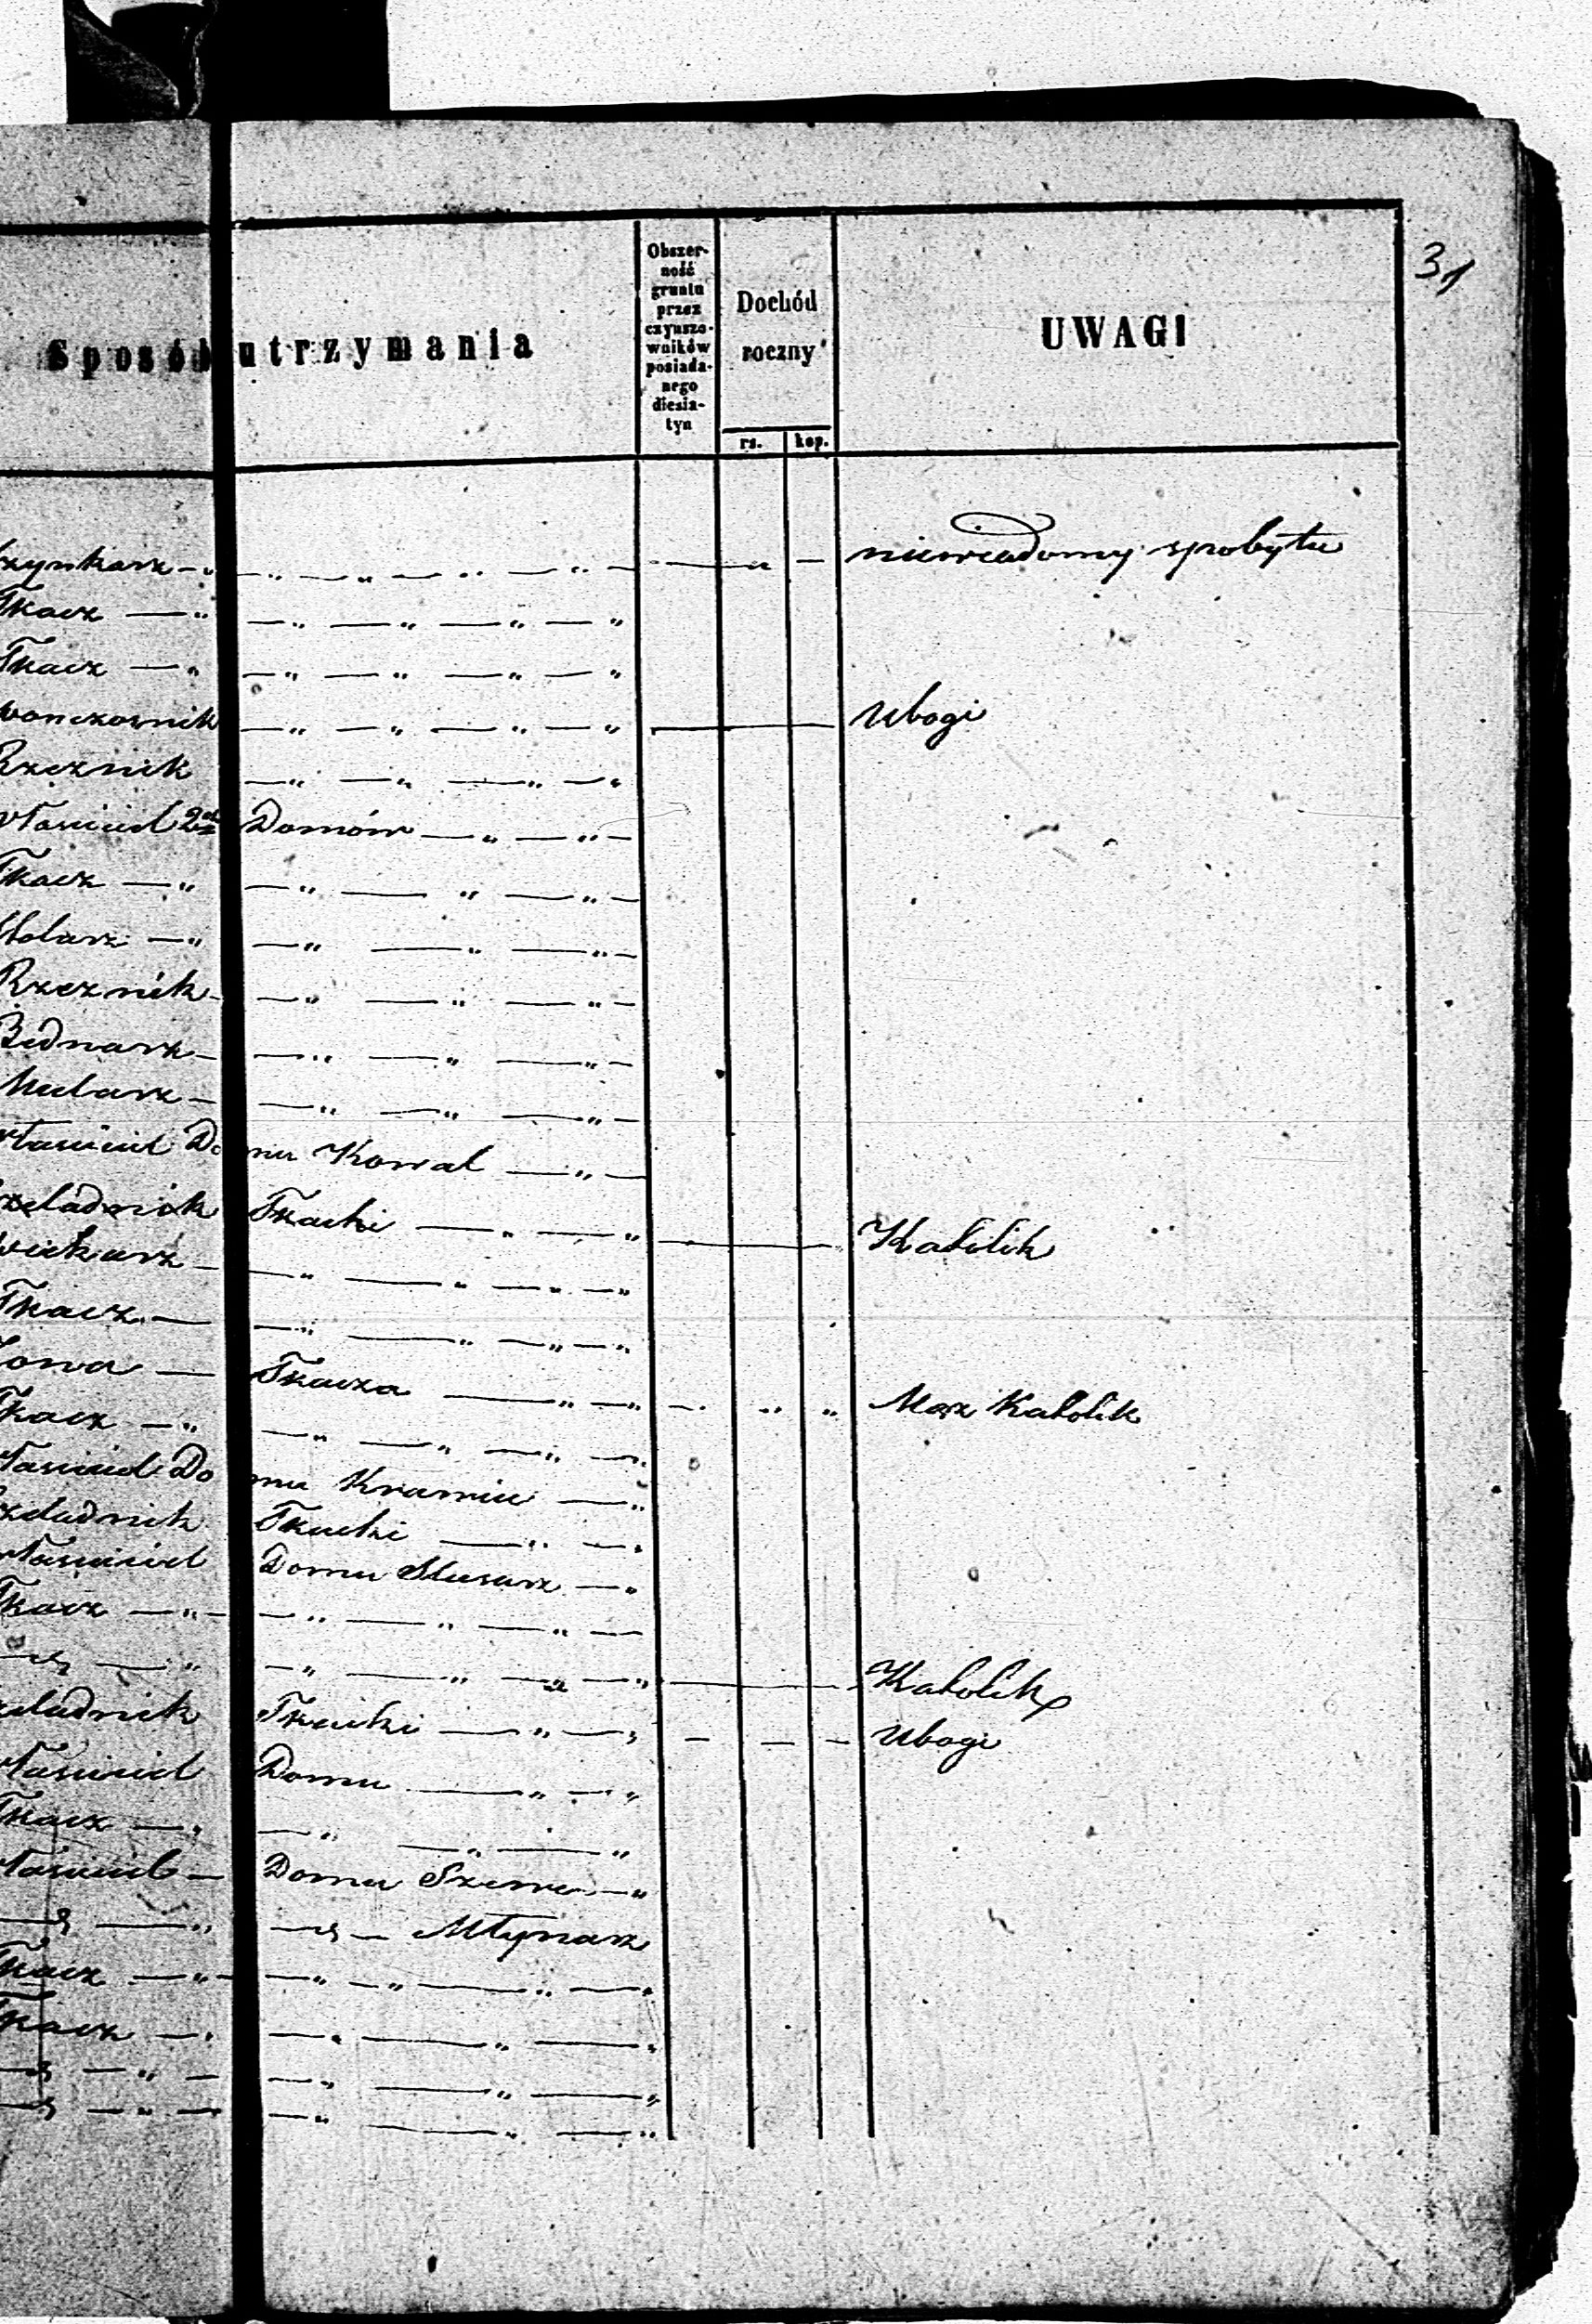 31
Sposób utrzymania
Obszer-
ność
gruntu
przez
czynszo-
wników
posiada-
nego
diesia-
tyn
Dochód
roczny
rs. kop.
UWAGI
zynkarz niewiadomy z pobytu
Tkacz
Tkacz
Ubogi
Rzeznik
własciciel 2ch Domów
Tkacz
Stolarz
Rzeznik
Bednarz
Mularz
własciciel Domu Kowal
zeladnik Tkacki Katolik
Tkacz
dowa Tkacza Mąz Katolik
Tkacz
własciciel Domu Kramm
zeladnik Tkacki
własciciel Domu Slusarz
Tkacz
Katolik
zeladnik Tkacki Ubogi
własciciel Domu
Tkacz
własciciel Domu Szewc
Młynarz
Tkacz
Tkacz